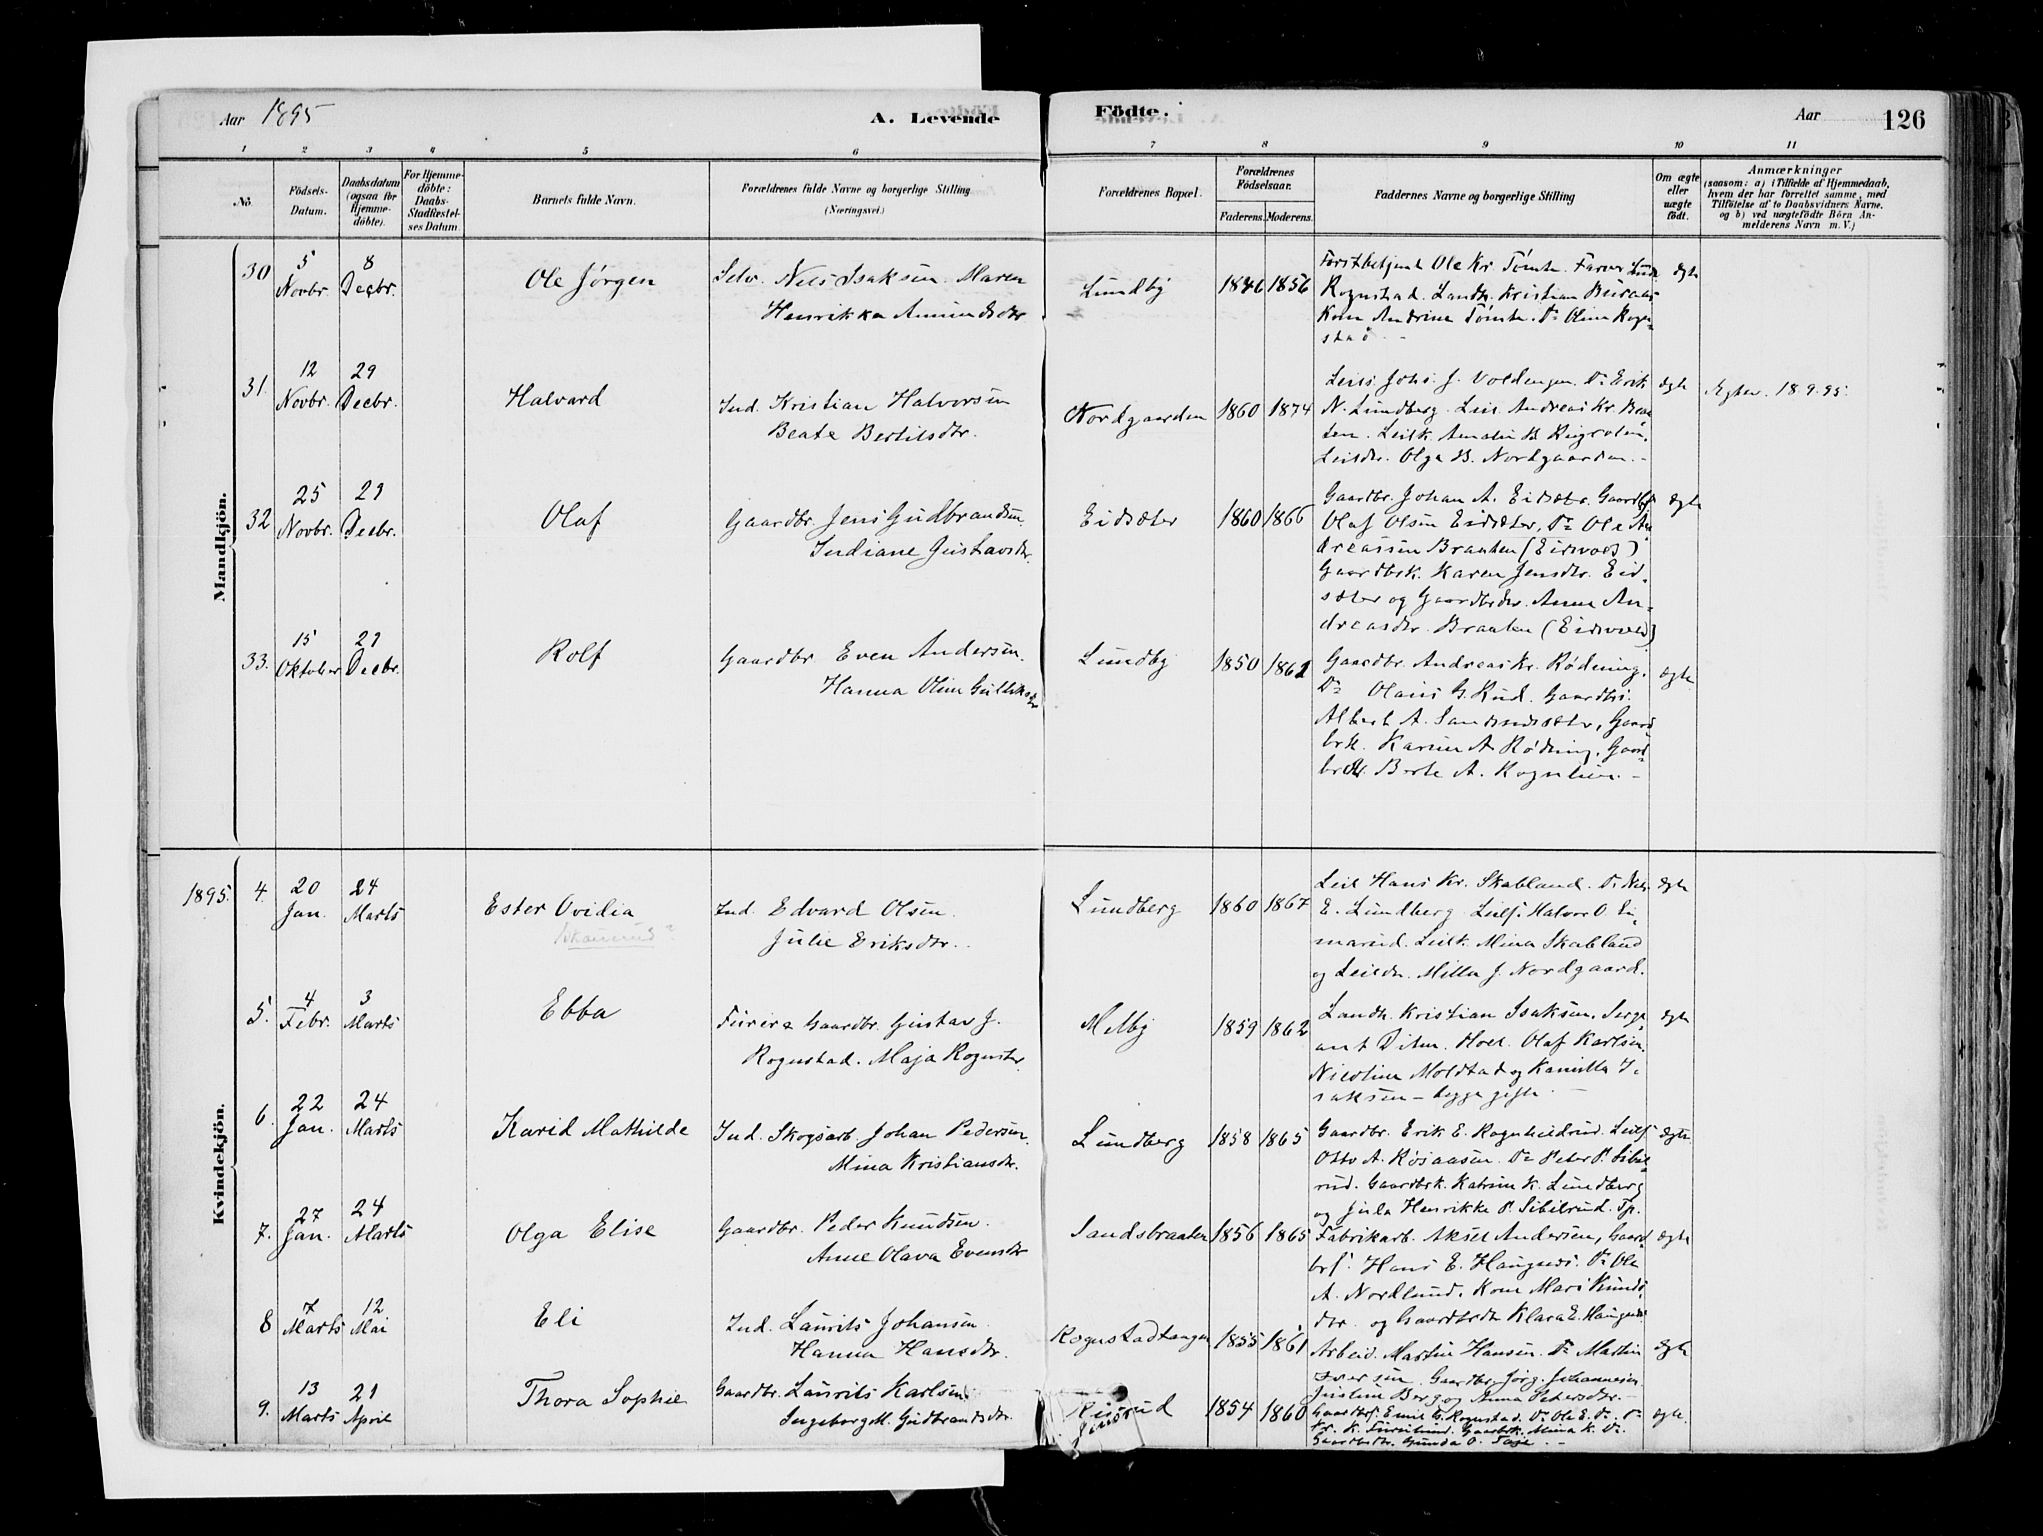 Aar 1895 A. Levende Födte. Aar 126
1 2 3 4 5 6 7 8 9 10 11
No. Födsels-Datum. Daabsdatum (ogsaa for Hjemmedöbte). For Hjemmedöbte: Daabs-Stadfæstelses Datum. Barnets fulde Navn. Forældrenes fulde Navne og borgerlige Stilling (Næringsvei) Forældrenes Bopæl. Forældrenes Födselsaar. Faderens. Moderens. Faddernes Navne og borgerlige Stilling Om ægte eller uægte födt. Anmærkninger (saasom: a) i Tilfælde af Hjemmedaab, hvem der har forrettet samme, med Tilföielse af to Daabsvidners Navne, og b) ved uægtefödte Börn Anmelderens Navn m. V.)
Mandkjön.
30 5 Novbr. 8 Decbr. Ole Jørgen Selv. Nils Isaksen. Maren
Henrikka Amundsdtr Lundby 1846 1856 ægte
Forstbetjent Ole Kr. Tømte.
Rognstad. Landh. Kristian
Kone Andrine Tømte. Do Oline Rogn-
stad
31. 12 Novbr. 29 Decbr. Halvard Ind. Kristian Halvorsen
Beate Bertilsdtr. Nordgaarden 1860 1874 ægte 18.9.95.
Leils. Johs. J. Voldengen. Do Erik
N. Lundberg. Leil. Andreas Kr. Braa-
ten. Leilk. Amalie B.
Leildr. Olga B. Nordgaarden.
32 25 Novbr. 29 Decbr. Olaf Gaardbr. Jens Gudbrandsen.
Indiane Gustavsdtr. Eidsæter 1860 1866 ægte
Gaardbr. Johan A. Eidsæter. Gaardbs
Olaf Olsen Eidsæter, Do Ole An-
dreassen Braaten (Eidsvold)
Gaardbrk. Karen Jensdtr. Eid-
sæter og Gaardbrdr. Anne An-
dreasdtr. Braaten (Eidsvold)
33. 15 Oktober 29 Decbr. Rolf Gaardbr Even Andersen.
Hanna Oline Gulliksdtr Lundby 1850 1861 ægte
Gaardbr. Andreas Kr. Rødning.
Do Olaus G. Rud. Gaardbrs.
Albert A. Sandsnesæter, Gaard-
brk. Karen A. Rødning, Gaard-
brdtr. Berte A. Rognlien.
Kvindekjön.
1895. 4. 20 Jan. 24 Marts Ester Ovidia Ind. Edvard Olsen.
Julie Eriksdtr. Lundberg 1860 1867 ægte
Leil Hans Kr. Skabland. Do
E. Lundberg. Leils. Halvor O. Ei-
marud. Leilk. Mina Skabland
og Leildr. Milla J. Nordgaard.
5. 4 Febr. 3 Marts Ebba Furer & Gaardbr. Gustav J.
Rognstad. Maja Rognstad. Melby 1859 1862 ægte
Landh. Kristian Isaksen. Serge-
ant Ditm. Hoel. Olaf Karlsen.
Nicoline Moldstad og Kamilla I-
saksen - begge gifte.
6. 22 Jan. 24 Marts Karid Mathilde Ind. Skogsarb. Johan Pedersen.
Mina Kristiansdtr. Lundberg 1858 1865 ægte
Gaardbr. Erik E. Rognhildrud. Leils.
Otto A. Røsaasen. Do Peter P. Sibil-
rud. Gaardbrk. Katrine K. Lundberg
og Jula Henrikke P. Sibilrud. Tp.
7. 27 Jan. 24 Marts Olga Elise Gaardbr. Peder Knudsen.
Anne Olava Evensdtr Sandsbraaten 1856 1865 ægte
Fabrikarb. Aksel Andersen, Gaard-
brs. Hans E. Haugnæs. Do Ole
A. Nordlund. Kone Mari Knuds-
dtr. og Gaardbrdtr Klara E. Haugnæs
8 7 Marts 12 Mai Eli Ind. Laurits Johansen.
Hanna Hansdtr. Rognstadtangen 1855 1861 ægte
Arbeid. Martin Hansen. Do Martin
Iversen. Gaardbr. Jørg. Johannesen
Justine Berg og Anna Petersdtr.
9. 13 Marts 21 April Thora Sophie Gaardbr. Laurits Karlsen
Ingeborg M. Gudbrandsdtr. 1854 1860 ægte.
Gaardbrs. Emil G. Rognstad. Do Ole E. Do. Do
Gaardbrk. Mina K. Do
Gaardbrdtr. Gunda O.